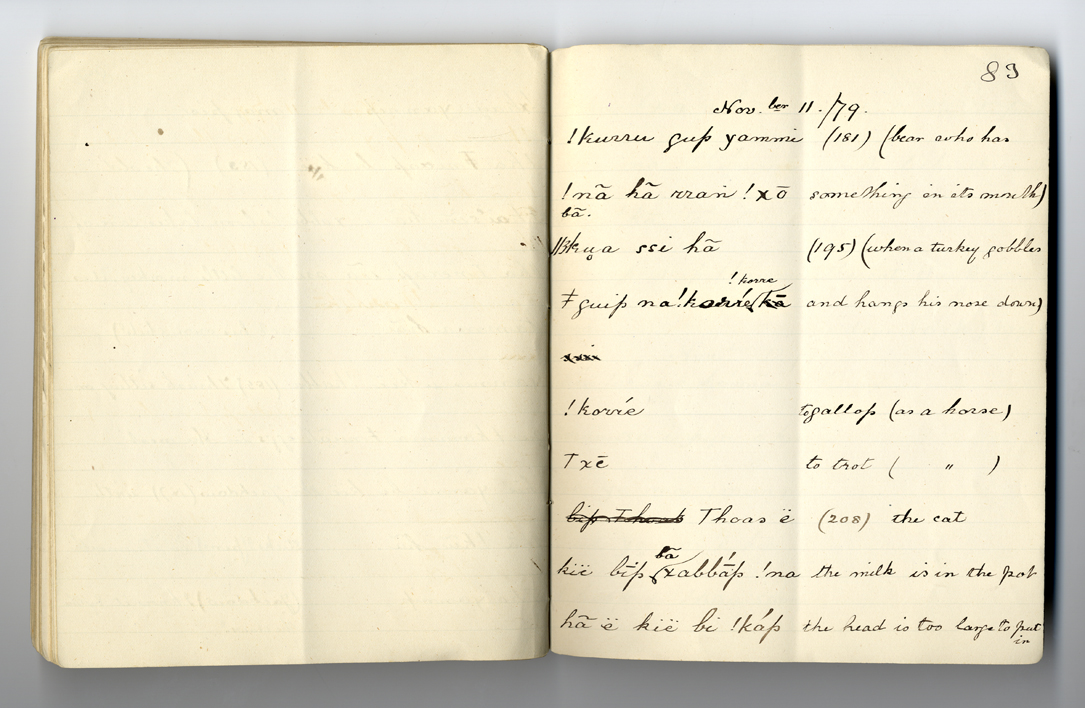 83
Nov.ber 11./79.
!kurru guṗ yammi (181) (bear who has
!nā hā rran !xō something in its mouth)
bā.
kṷa ssi hā (195) (when a turkey gobbles
!korre
ǂguiṗ na !korrie kā and hangs his nose down)
!korríe to gallop (as a horse)
Txē to trot ( " )
Thoas ë (208) the cat
bā
kïë bīp xabbáp !na the milk is in the pot
hā ë kïë bi !káp the head is too large to put
in